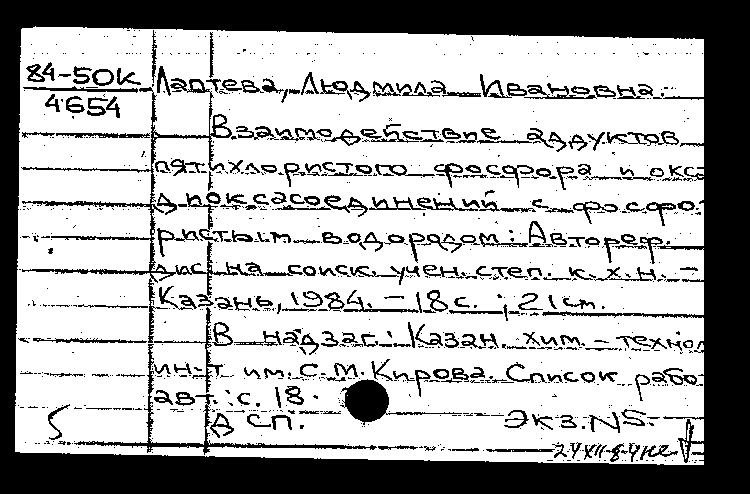 84-5ОК
4654
Лаптева, Людмила Ивановна.
Взаимодействие аддуктов
пятихлористого фосфора и окса-
диоксасоединений с фосфо-
ристым водородом: Автореф.
дис. на соиск. учен. степ. к. х. н. –
Казань, 1984. – 18 с. ; 21 см.
В надзаг.: Казан. хим. – технол
ин-т им. С. М. Кирова. Список рабо
авт.: с. 18.
ДСП. Экз. N5.
5